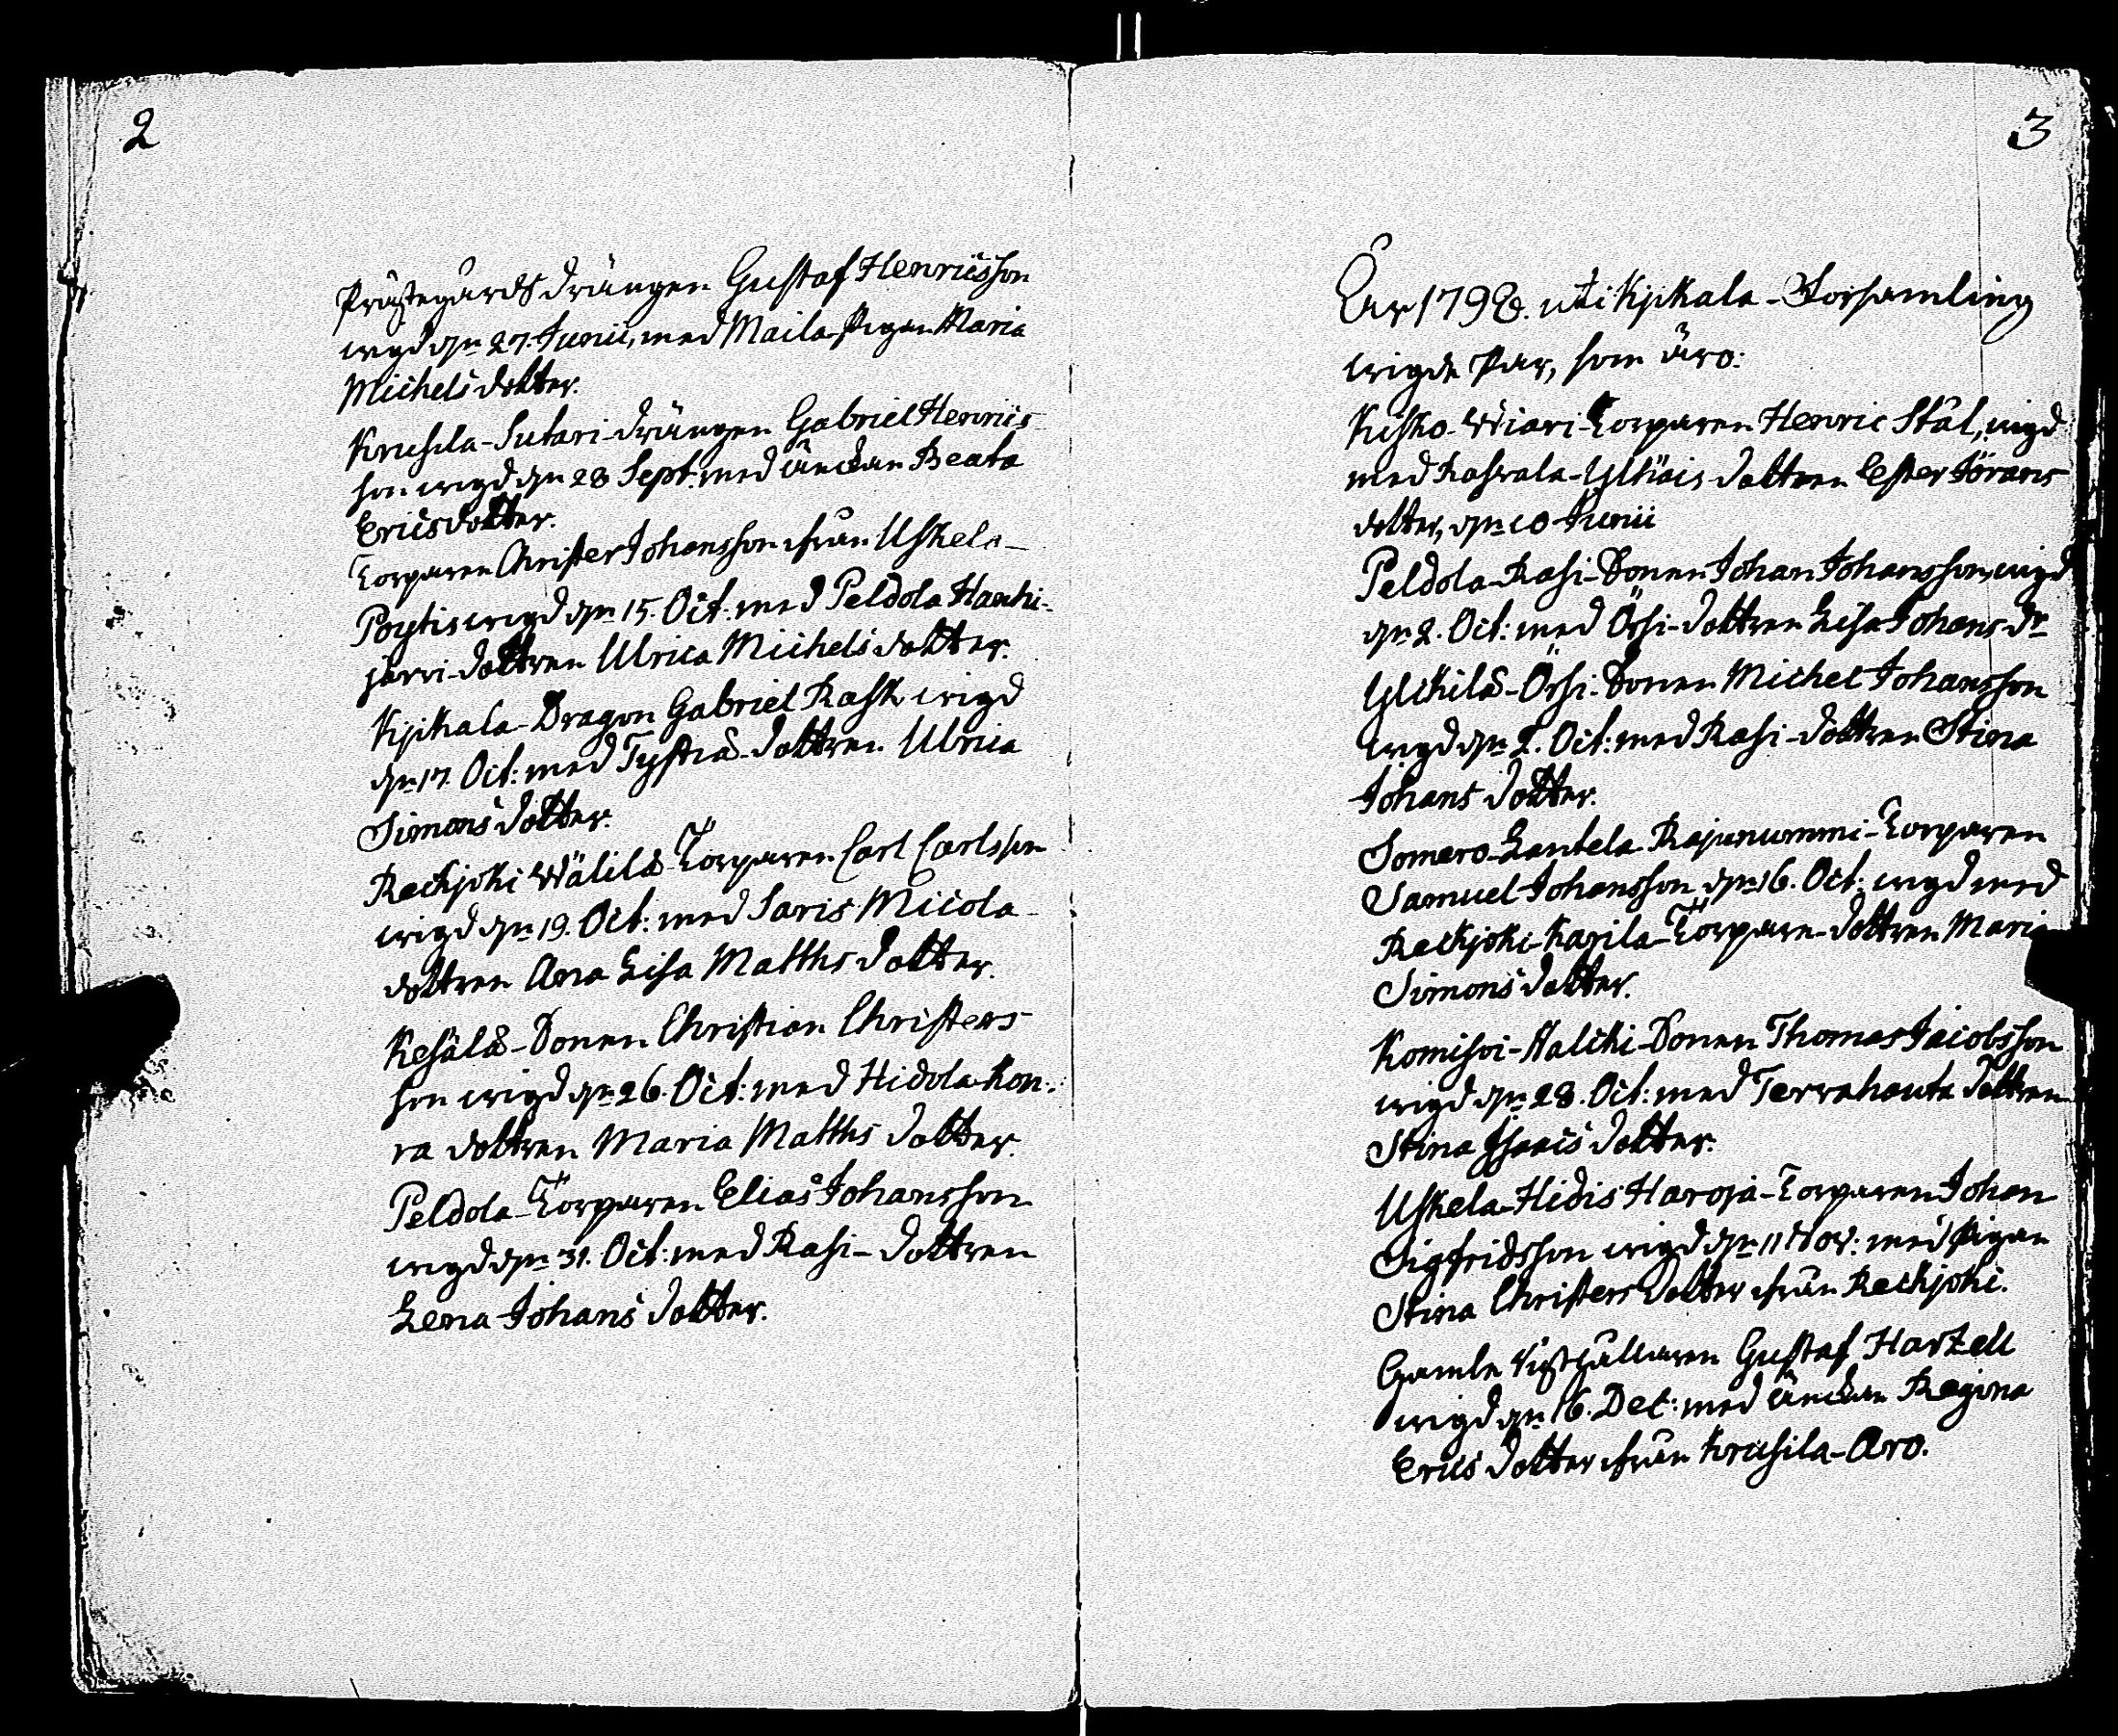 2
Prästegårds drängen Gustaf Henricsson
wigd dn 27. Junii, med Maila-Pigan Maria
Michels dotter.
Krusila-Sutari-drängen Gabriel Henrics
son wigd dn 28 Sept. med änckan Beata
Erics dotter.
Torparen Christer Johansson ifrån Uskela-
Poytis wigd dn 15. Oct. med Peldola Haarhi-
järvi-dottren Ulrica Michels dotter.
Kjikala-Dragon Gabriel Rask wigd
dn 17. Oct: med Tystiä-dottren Ulrica
Simons dotter.
Reckjoki Wälilä-Torparen Carl Carlsson
wigd dn 19. Oct: med Saris Micola-
dottren Ana Lisa Matths dotter.
Kesälä-Sonen Christian Christers-
son wigd dn 26. Oct: med Hidola-Kon-
ra dottren Maria Matths dotter.
Peldola-Torparen Elias Johansson
wigd dn 31. Oct: med Rasi-dottren
Lena Johans dotter.
3
År 1798. uti Kjikala-Församling
wigde Par, som äro:
Kisko-Wiari-Torparen Henric Stål, wigd
med Rasvala-Yliäis-dottren Ester Jörans
dotter, dn 10 Junii
Peldola-Rasi-Sonen Johan Johansson, wigd
dn 2. Oct: med Örsi-dottren Lisa Johans dr
Ylikilä-Örsi-Sonen Michel Johansson
wigd dn 2. Oct: med Rasi-dottren Stina
Johans dotter.
Somero-Lantela Rajunummi-Torparen
Samuel Johansson dn 16. Oct: wigd med
Reckjoki-Karila-Torpare-dottren Maria
Simons dotter.
Komisoi-Halcki-Sonen Thomas Jacobsson
wigd dn 28. Oct: med Terrahauta dottren
Stina Isaacs dotter.
Uskela-Hidis Haroja-Torparen Johan
Sigfridsson wigd dn 11 Nov: med Pigan
Stina Christers dotter ifrån Reckjoki.
Gamle Gustaf Hartzell
wigd dn 16. Dec: med änckan Regina
Erics dotter ifrån Krusila-Aro.